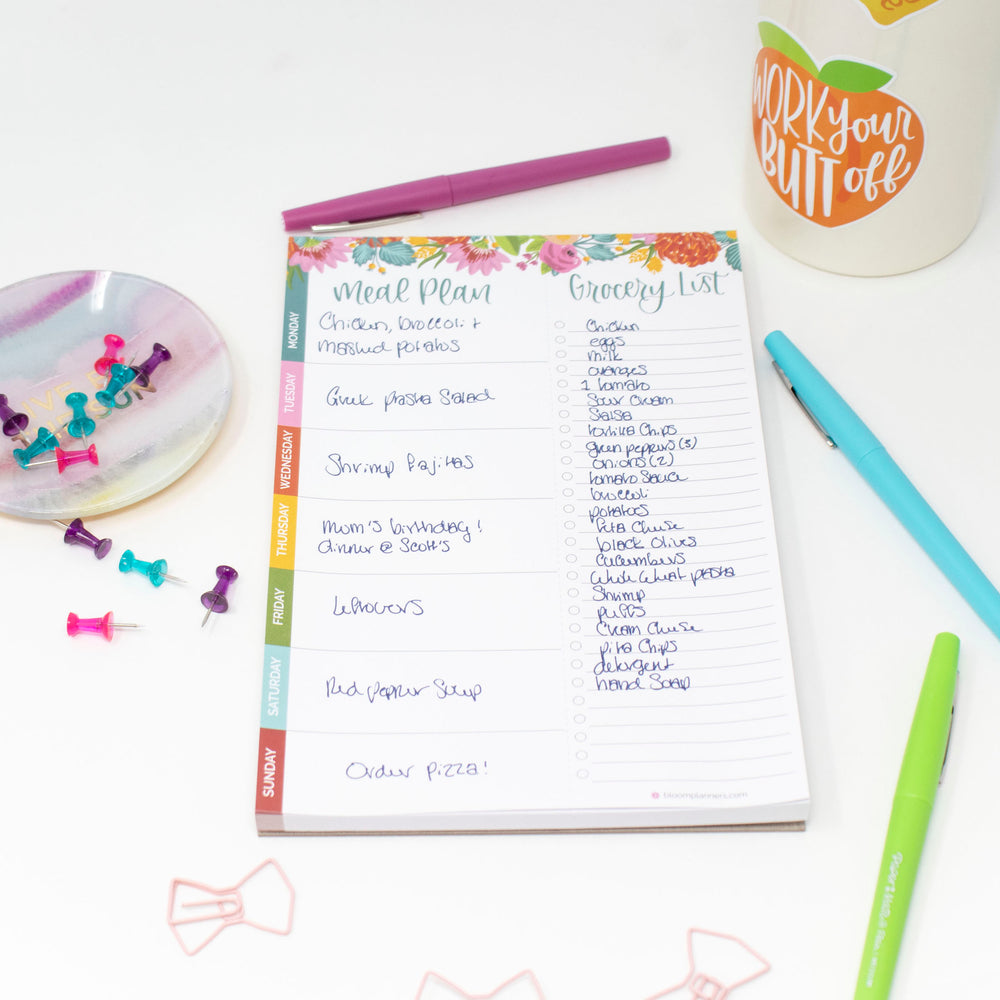 WORK your
BUTT off
Meal Plan
MONDAY
Chicken, broccoli +
mashed potatos
TUESDAY
Greek pasta Salad
WEDNESDAY
Shrimp Fajitas
THURSDAY
mom's birthday!
dinner @ Scott's
FRIDAY
Leftovers
SATURDAY
Red pepper Soup
SUNDAY
Order Pizza!
Grocery List
Chicken
eggs
milk
oranges
1 tomato
Sour Cream
Salsa
tortilla Chips
green peppers (3)
onions (2)
tomato Sauce
broccoli
potatoes
feta Cheese
black olives
cucumbers
whole wheat pasta
Shrimp
puffs
Cream Cheese
pita Chips
detergent
hand Soap
bloomplanners.com